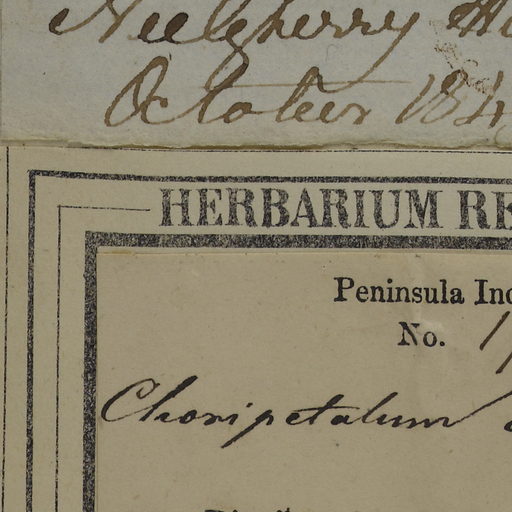 Neelgherry
October 184
HERBARIUM RE
Peninsula Ind
No. 1
Choripetalum